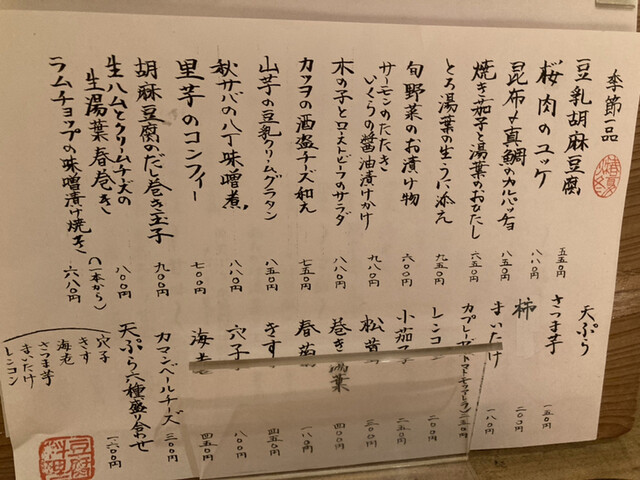 季節一品
豆乳胡麻豆腐 五五〇円
桜肉のユッケ 八八〇円
昆布〆真鯛のカルパッチョ 八五〇円
焼き茄子と湯葉のおひたし 六五〇円
とろ湯葉の生うに添え 九五〇円
旬野菜のお漬け物 六〇〇円
サーモンのたたき
いくらの醤油漬けかけ 九八〇円
木の子とローストビーフのサラダ 八八〇円
カツヲの酒盗チーズ和え 七五〇円
山芋の豆乳クリームグラタン 八五〇円
秋サバの八丁味噌煮 八八〇円
里芋のコンフィー 七〇〇円
胡麻豆腐のだし巻き玉子 九〇〇円
生ハムとクリームチーズの
生湯葉春巻き 八〇〇円
ラムチョップの味噌漬け焼き (一本から) 六八〇円
天ぷら
さつま芋 一五〇円
柿 二〇〇円
まいたけ 一八〇円
カプレーゼ(トマトモッツァレラ) 二五〇円
レンコン 二〇〇円
小茄子 二五〇円
松茸 五〇〇円
巻き湯葉 四〇〇円
春菊 一八〇円
きす 四五〇円
穴子 八〇〇円
海老 四五〇円
カマンベールチーズ 三〇〇円
天ぷら六種盛り合わせ 一六〇〇円
穴子
きす
海老
さつま芋
まいたけ
レンコン
豆腐料理